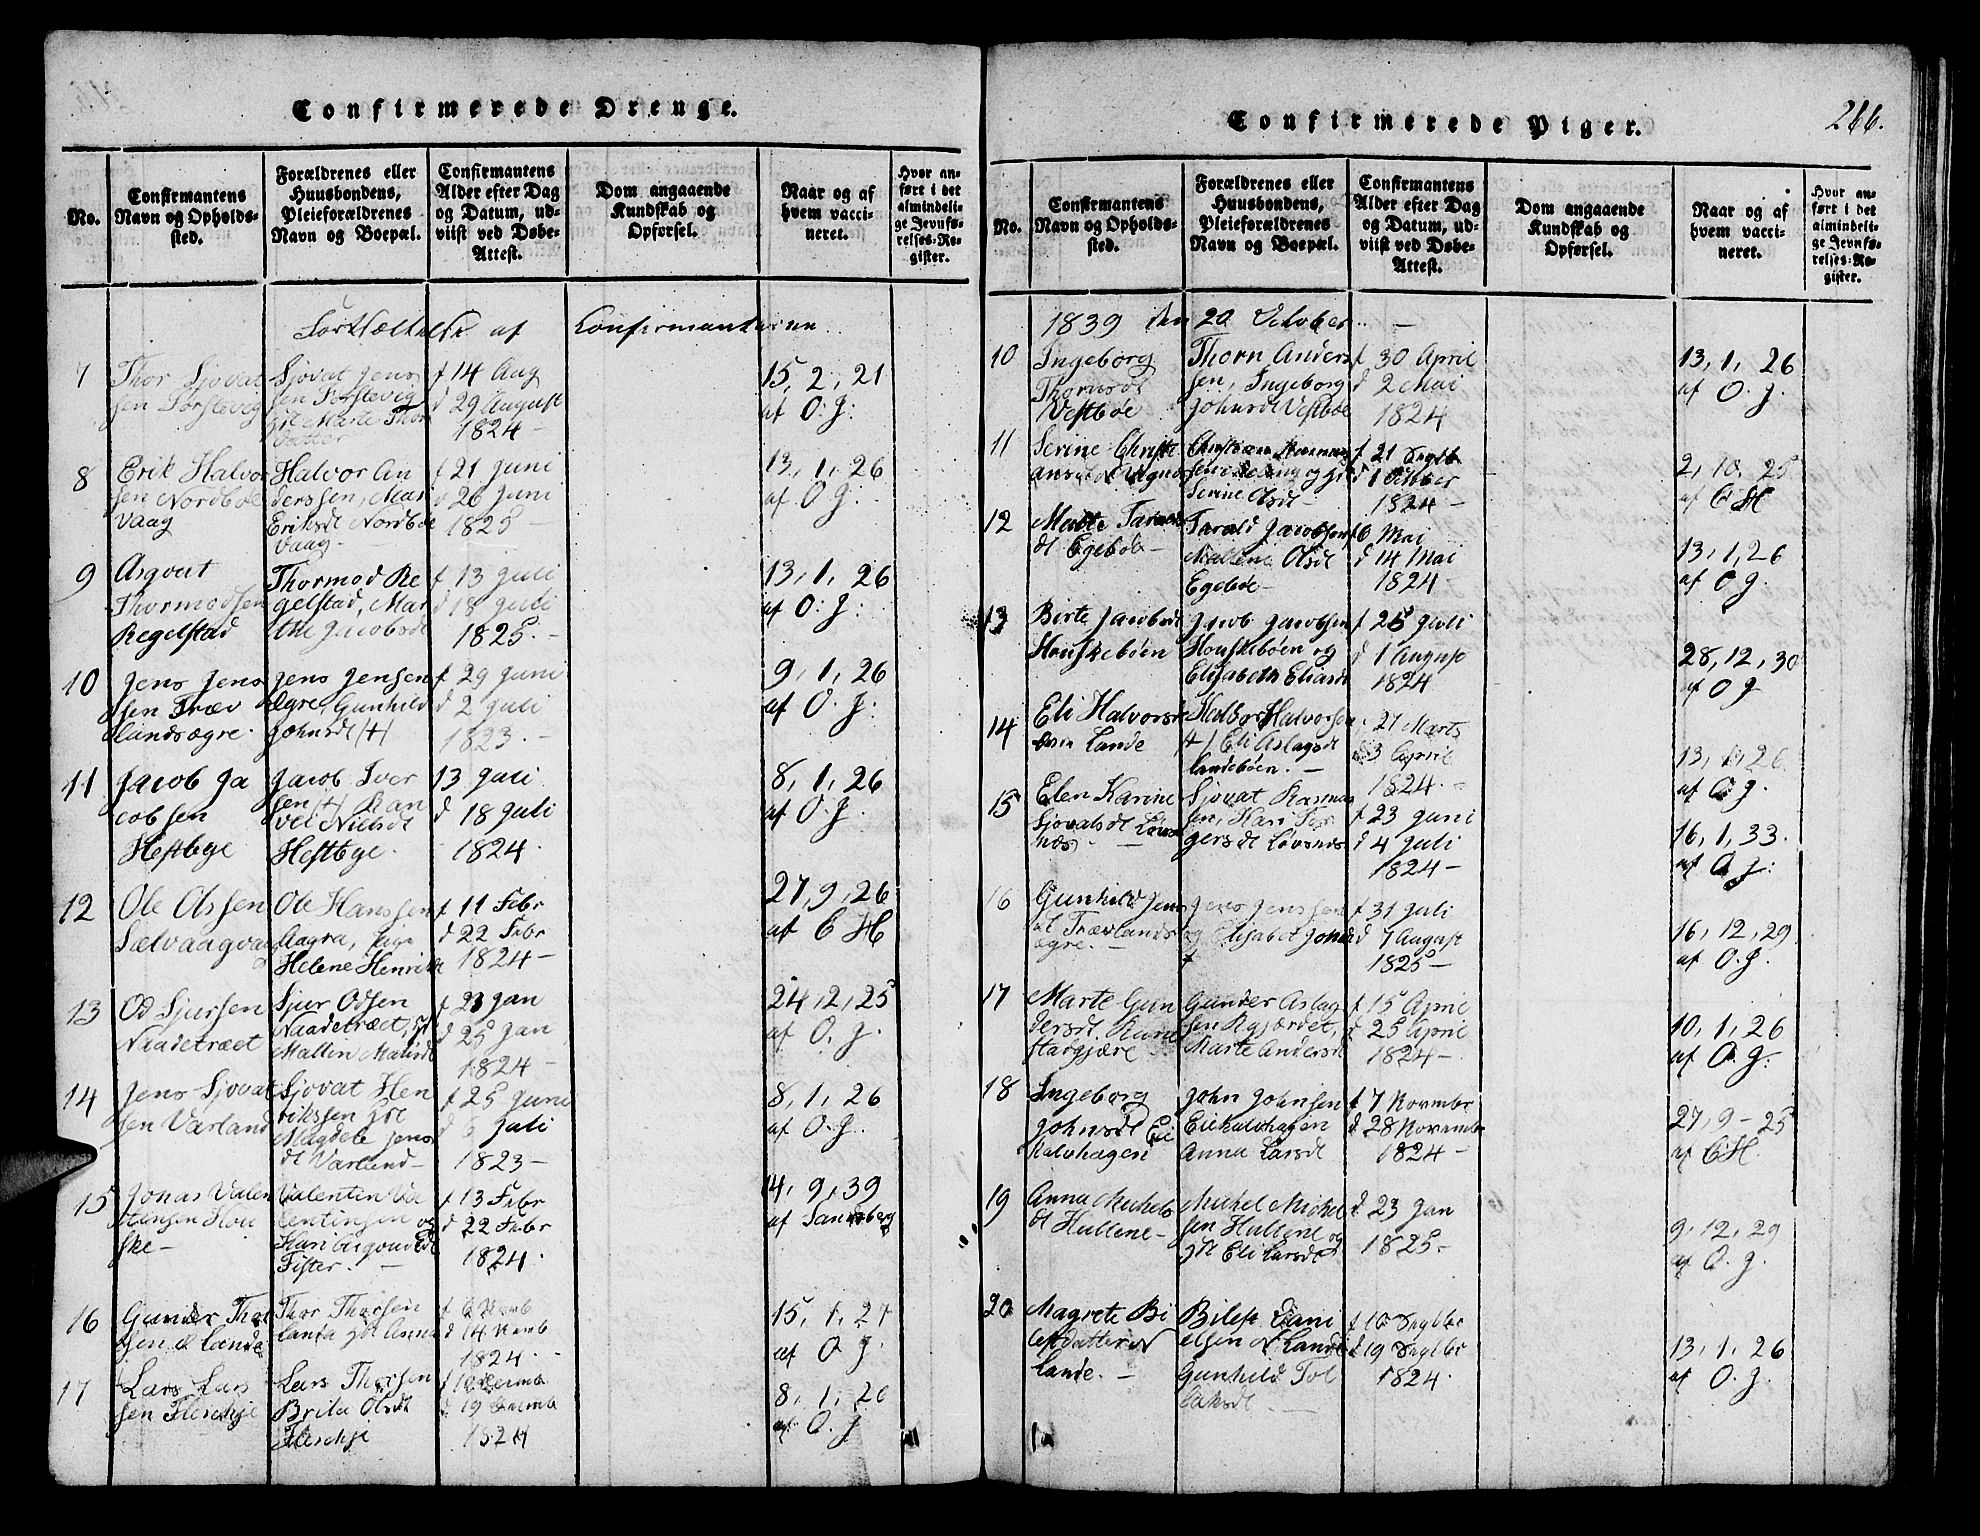 Confirmerede Drenge.
No.
Confirmantens
Navn og Opholds-
sted.
Forældrenes eller
Huusbondens,
Pleieforældrenes
Navn og Boepæl.
Confirmantens
Alder efter Dag
og Datum, ud-
viist ved Døbe-
Attest.
Dom angaaende
Kundskab og
Opførsel.
Naar og af
hvem vacci-
neret.
Hvor an-
ført i det
almindeli-
ge Jevnfø-
relses-Re-
gister.
af Confirmanterne
7
Thor Sjovat
sen
Sjovat Jens
sen
Marte Thor
datter
f 14 Aug
d 29 August
1824 -
15, 2, 21
af O. J.
8
Erik Halvor
sen Nordbøe
Vaag
Halvor An
derssen, Mar
Eriksdt Nordbøe
Vaag -
f 21 Juni
d 26 Juni
1825 -
13, 1, 26
af O J.
9
Asgout
Thormodsen
Regelstad
Thormod Re
gelstad, Mar
the Jacobsdt
f 13 Juli
d 18 Juli
1825. -
13, 1, 26
af O. J.
10
Jens Jens
sen Træv
landsøgre.
Jens Jensen
Øgre, Gunhild
Johnsdt (+)
f 29 Juni
d 2 Juli
1823. -
9, 1, 26
af O. J.
11
Jacob Ja
cobsen
Hestbye
Jacob Iver
sen (+) Ran
vei Nielsdt
Hestbye.
13 Juli
d 18 Juli
1824.
8, 1, 26
af O. J.
12
Ole Olssen
Sælvaagvaag
Ole Hanssen
Aagra, pige
Helene Henrik
f 11 Febr
d 22 Febr
1824 -
27, 9, 26
af C H
13
Od Sjursen
Naadetræet
Sjur Odsen
Naadetræet,
Mallin
f 23 Jan
d 25 Jan
1824 -
24, 2, 25
af O. J.
14
Jens Sjovat
sen Varland
Sjovat Hen
rikssen
Magdele Jens
dt Varland -
f 25 Juni
d 6 Juli
1823 -
8, 1, 26
af O. J.
15
Jonas Valen
tinsen Hou
ske -
Valentin Va
lentinsen og
Kari
Fister. -
f 13 Febr
d 22 Febr
1824.
4, 9, 39
af Sandsberg
16
Gunder Thor
sen
Thor Thorsen
Anna
d 14
1824.
15, 1, 27
af O J.
17
Lars Lars
sen
Lars Thorsen
Brita Olsdt
d 19
1824
8, 1, 26
af O. J
Confirmerede Piger.
266.
No.
Confirmantens
Navn og Opholds-
sted.
Forældrenes eller
Huusbondens,
Pleieforældrenes
Navn og Boepæl.
Confirmantens
Alder efter Dag
og Datum, ud-
viist ved Døbe-
Attest.
Dom angaaende
Kundskab og
Opførsel.
Naar og af
hvem vacci-
neret.
Hvor an-
ført i det
almindeli-
ge Jevnfø-
relses-Re-
gister.
1839 den 20 October. -
10
Ingeborg
Thornsdt
Vestbøe
Thorn Anders
sen, Ingeborg
Johnsdt Vestbøe
f 30 April
d 2 Mai
1824
13, 1, 26
af O. J.
11
Serine Christi
Serine Olsdt -
f 21 Septb
d 1 October
1824 -
2, 10, 25
af C H
12
Malte
dt Egebøe -
Tarald Jacobsen
Mallene Olsdt
Egebøe -
f 6 Mai
d 14 Mai
1824 -
13, 1, 26
af O J.
13
Birte Jacobsdt
Houskebøen
Jacob Jacobsen
Houskebøen og
Elisabeth Eliasdt
f 25 Juli
d 1 August
1824
28, 12, 30
af O J
14
Eli Halvorsdt
Lande
Halvorsen
(+) Eli Aslagsdt
Landebøen. -
27 Marts
d 3 April
1824. -
13, 1, 26
af O J.
15
Elen Karine
Sjovatsdt Løvs
nes. -
Sjovat Rasmus
sen, Kari Tor
gersdt Løvsnes
f 23 Juni
d 4 Juli
1824 -
16, 1, 33.
af O J.
16
Gunhild Jens
dt Trævlands
øgre. -
Jens Jenssen
og Elisabet Johnsdt
+
f 31 Juli
d 7 August
1825 -
16, 12, 29
af O. J.
17
Marte Gun
dersdt
Gunder Aslag
sen
Marte Andersdt
f 15 April
d 25 April
1824 -
10, 1, 26
af O J.
18
Ingeborg
Johnsdt Ei
kelvhagen
John Johnsen
Eikelvhagen
Anna Larsdt
f 7 November
d 28 November
1824 -
27, 9 - 25
af C H.
19
Anna Michels
dt Hullene -
Michel Michel
sen Hullene og
Eli Larsdt
d 23 Jan
1825 -
9, 12, 29
af O. J.
20
Magrete Bi
lefsdatter N
Lande. -
Bilef Dani
elsen N Lande
Gunhild Tol
laksdt -
f 10 Septbr
d 19 Septbr
1824.
13, 1, 26
af O. J.